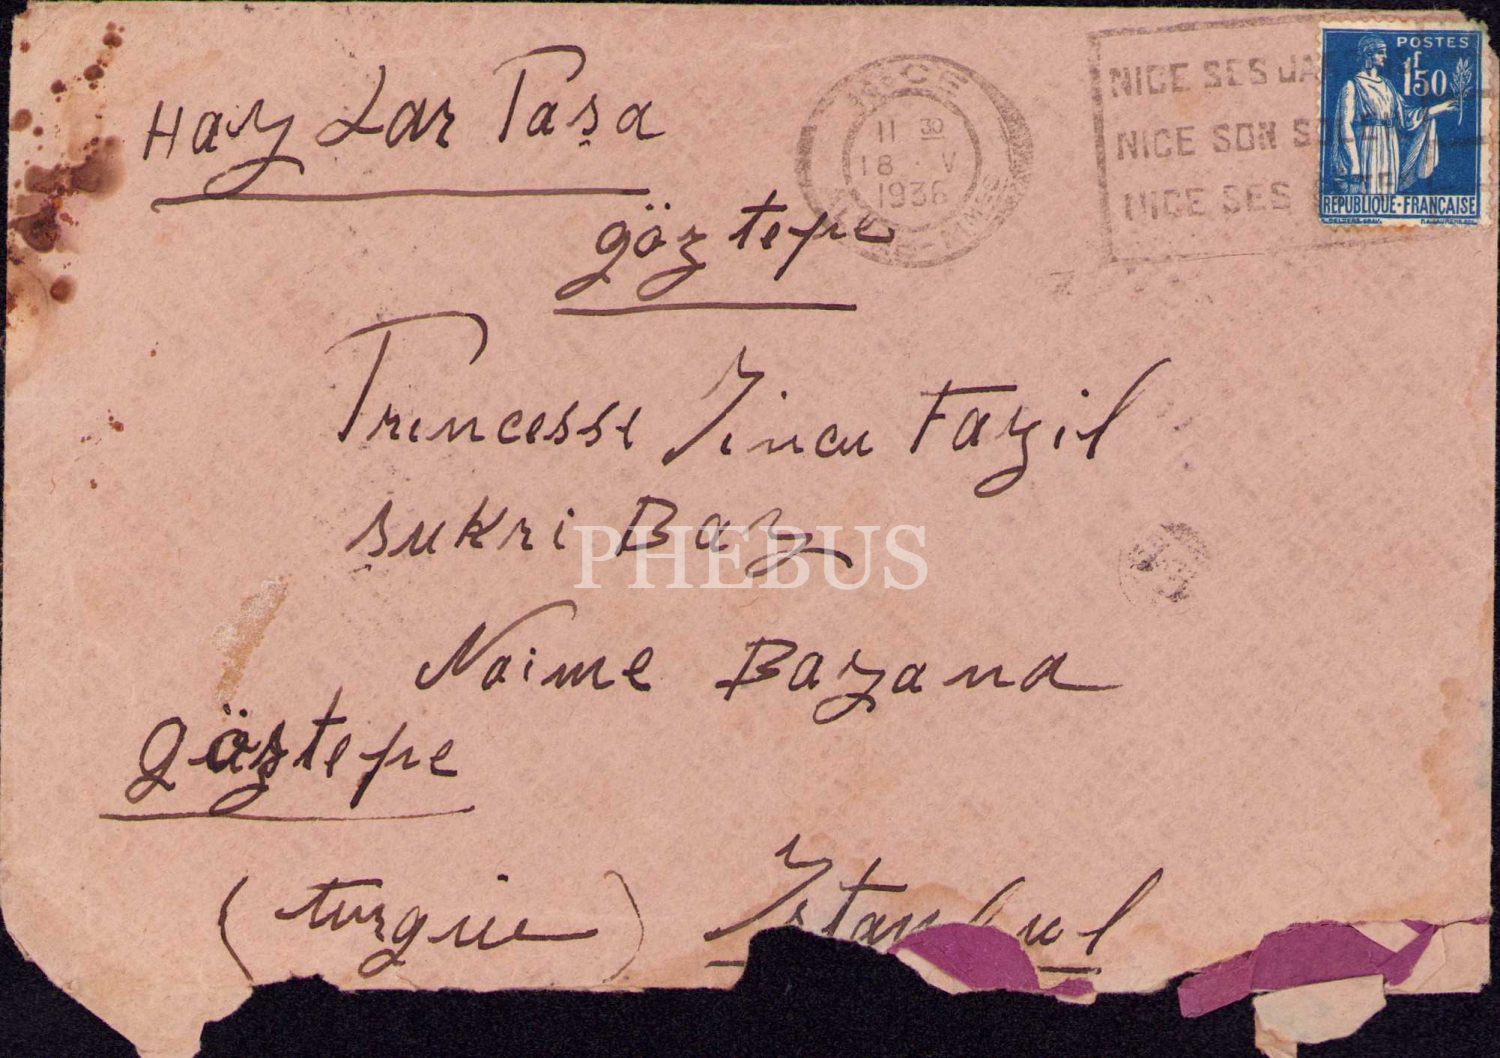 Hay Dar Paşa
göztepe
NICE
11 30
18 · V
1936
NICE SES JA
NICE SON S
NICE SES
POSTES
1f50
REPUBLIQUE·FRANÇAISE
Princesse Fazil
şukri Bay
PHEBUS
Naime Bayana
göztepe
(turquie) Istanbul